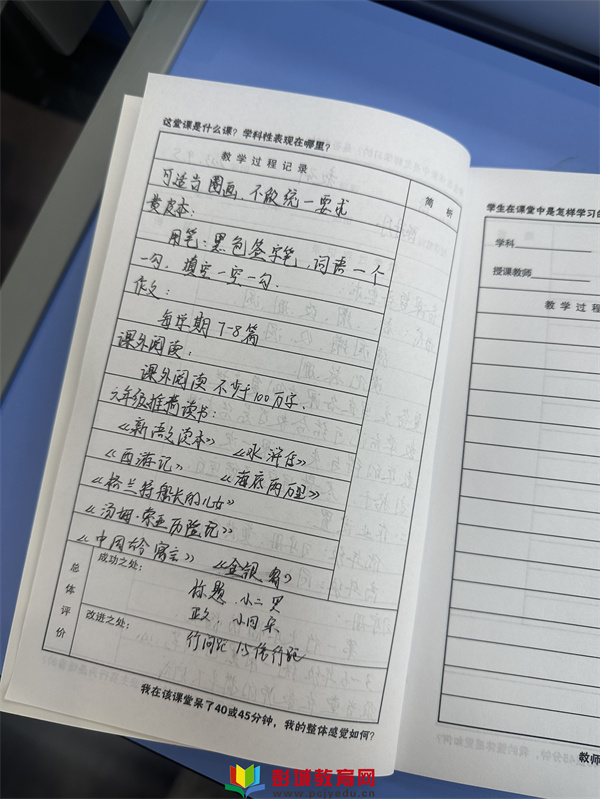 这堂课是什么课？学科性表现在哪里？
教学过程记录
简析
可适当圈画，不做统一要求
黄皮本：
用笔：黑色签字笔，词语一个
一句，填空一空一句．
作文：
每学期7-8篇
课外阅读：
课外阅读不少于100万字．
六年级推荐读书：
《新语文读本》 《水浒传》
《西游记》 《海底两万里》
《格兰特船长的儿女》
《汤姆·索亚历险记》
《中国古今寓言》 《金银岛》
总体评价
成功之处：
标题，小二黑
正文，小四宋
改进之处：
行间距 1.5倍行距
我在该课堂呆了40或45分钟，我的整体感觉如何？
学生在课堂中是怎样学习的
学科
授课教师
教学过程
教师
彭城教育网
www.pcjyedu.cn